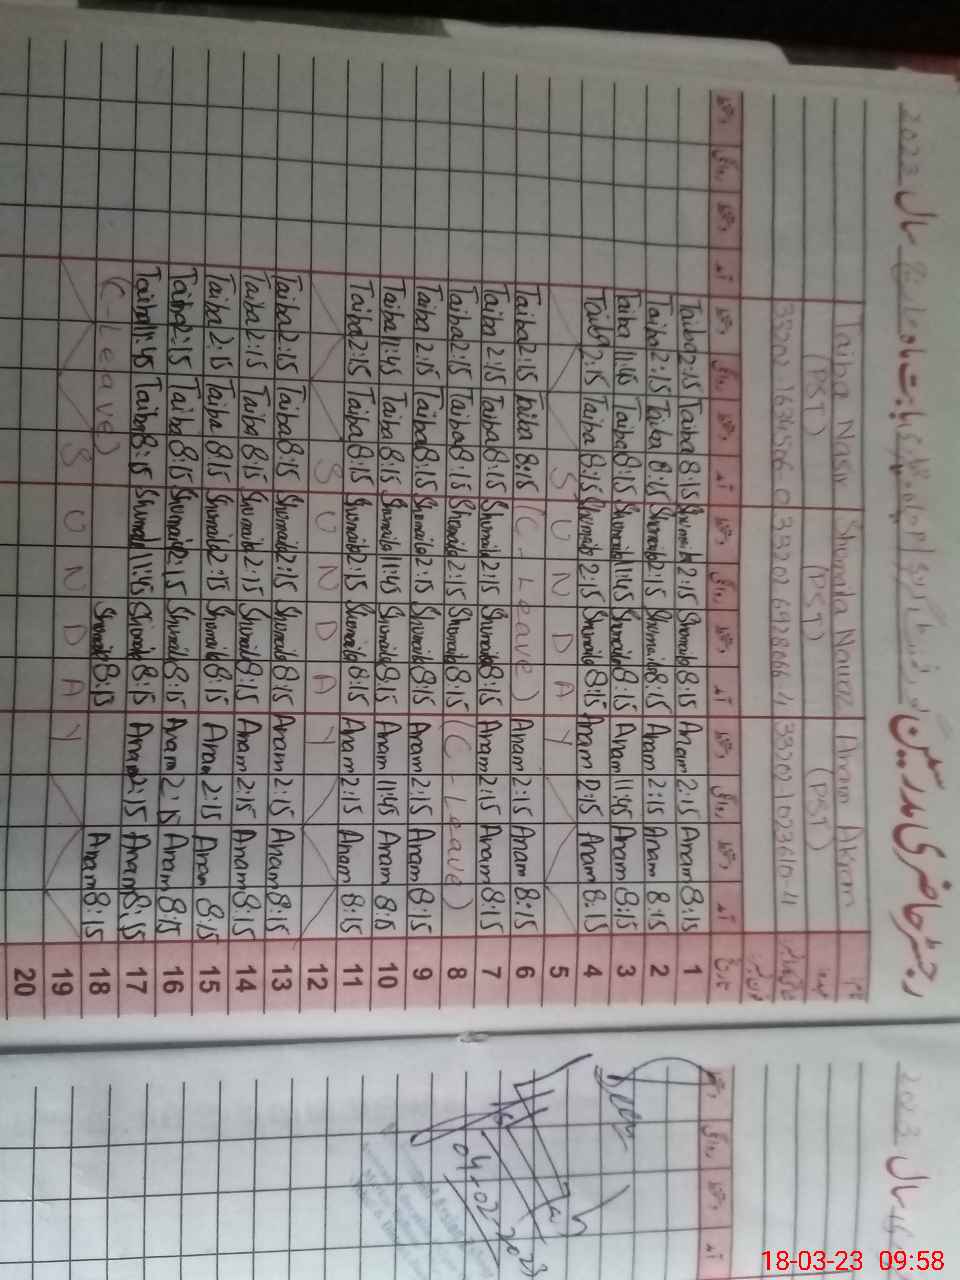 رجسٹر حاضری مدرسین بابت ماہ مارچ سال 2023
نام Taiba Nasir Shomaila Nawaz Anam Akram
عہدہ (PST) (PST) (PST)
تاریخ آمد دستخط روانگی دستخط آمد دستخط روانگی دستخط آمد دستخط روانگی دستخط آمد دستخط روانگی دستخط
Taiba 2:15 Taiba 8:15 Shumaila 2:15 Shumaila 8:15 Anam 2:15 Anam 8:15 1
Taiba 2:15 Taiba 8:15 Shumaila 2:15 Shumaila 8:15 Anam 2:15 Anam 8:15 2
Taiba 11:45 Taiba 8:15 Shumaila 11:45 Shumaila 8:15 Anam 11:45 Anam 8:15 3
Taiba 2:15 Taiba 8:15 Shumaila 2:15 Shumaila 8:15 Anam 2:15 Anam 8:15 4
S U N D A Y 5
Taiba 2:15 Taiba 8:15 (C-Leave) Anam 2:15 Anam 8:15 6
Taiba 2:15 Taiba 8:15 Shumaila 2:15 Shumaila 8:15 Anam 2:15 Anam 8:15 7
Taiba 2:15 Taiba 8:15 Shumaila 2:15 Shumaila 8:15 (C-Leave) 8
Taiba 2:15 Taiba 8:15 Shumaila 2:15 Shumaila 8:15 Anam 2:15 Anam 8:15 9
Taiba 11:45 Taiba 8:15 Shumaila 11:45 Shumaila 8:15 Anam 11:45 Anam 8:15 10
Taiba 2:15 Taiba 8:15 Shumaila 2:15 Shumaila 8:15 Anam 2:15 Anam 8:15 11
S U N D A Y 12
Taiba 2:15 Taiba 8:15 Shumaila 2:15 Shumaila 8:15 Anam 2:15 Anam 8:15 13
Taiba 2:15 Taiba 8:15 Shumaila 2:15 Shumaila 8:15 Anam 2:15 Anam 8:15 14
Taiba 2:15 Taiba 8:15 Shumaila 2:15 Shumaila 8:15 Anam 2:15 Anam 8:15 15
Taiba 2:15 Taiba 8:15 Shumaila 2:15 Shumaila 8:15 Anam 2:15 Anam 8:15 16
Taiba 11:45 Taiba 8:15 Shumaila 11:45 Shumaila 8:15 Anam 2:15 Anam 8:15 17
(C-Leave) Shumaila 8:15 Anam 8:15 18
S U N D A Y 19
20
سال 2023
دستخط روانگی دستخط آمد
04-02-2023
18-03-23 09:58